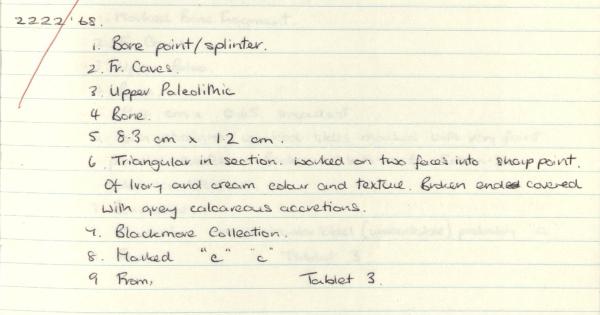 2222'68.
1. Bone point/splinter.
2. Fr. Caves.
3. Upper Paleolithic
4 Bone.
5. 8.3 cm x 1.2 cm.
6. Triangular in section. worked on two faces into sharp point.
Of Ivory and cream colour and texture. Broken ended covered
with grey calcareous accretions.
7. Blackmore Collection.
8. Marked "c" "c"
9 From, Tablet 3.